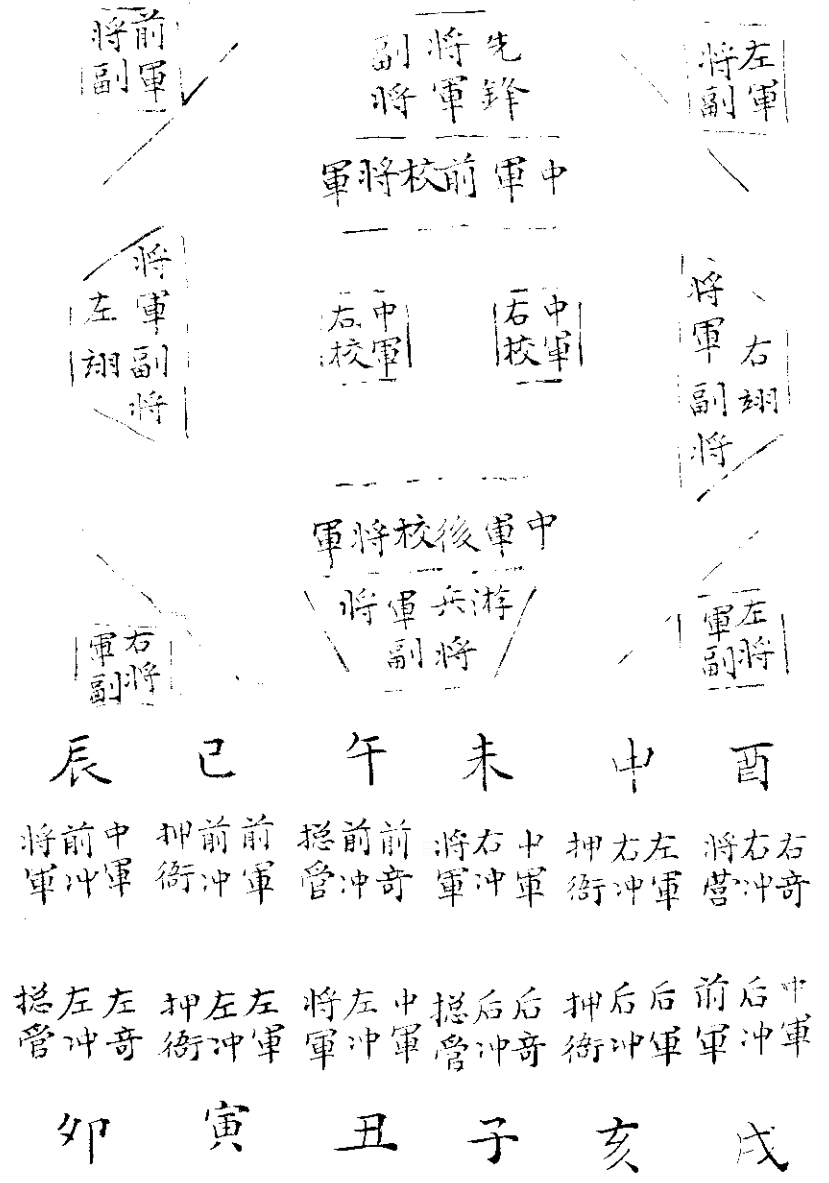 前軍
將副
先鋒
將軍
副將
左軍
將副
中軍前校將軍
將軍副將
左翊
中軍
右校
中軍
右校
右翊
將軍副將
中軍後校將軍
游兵軍將
將副
右將
軍副
左將
軍副
辰 巳 午 未 申 酉
中軍
前冲
將軍
前軍
前冲
押衙
前奇
前冲
捴營
中軍
右冲
將軍
左軍
右冲
押衙
右奇
右冲
將營
左奇
左冲
捴營
左軍
左冲
押衙
中軍
左冲
將軍
后奇
后冲
捴營
后軍
后冲
押衙
中軍
后冲
前軍
卯 寅 丑 子 亥 戌